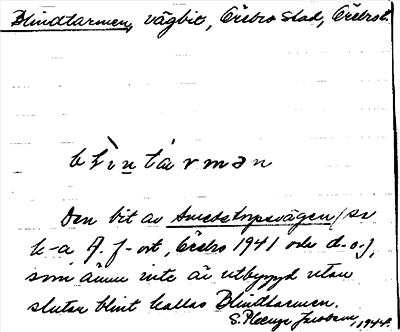 Blindtarmen, vägbit, Örebro stad, Örebro l.
blìntármən
Den bit av Smedstorpsvägen (se
k-a f. f-ort, Örebro 1941 odr d.o.),
som ännu inte är utbyggd utan
slutar blint kallas Blindtarmen.
S. 1948.